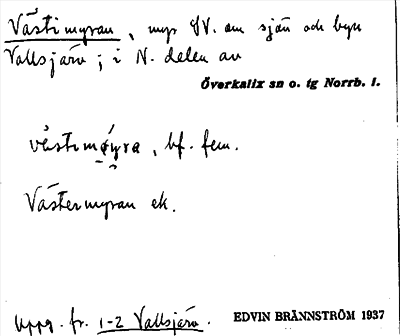 Västimyran, myr SV. om sjön och byn
Vallsjärv; i N. delen av
Överkalix sn o. tg Norrb. l.
vèstimø̀yra, bf. fem.
Västermyran ek.
Uppg. fr. 1-2 Vallsjärv.
EDVIN BRÄNNSTRÖM 1937